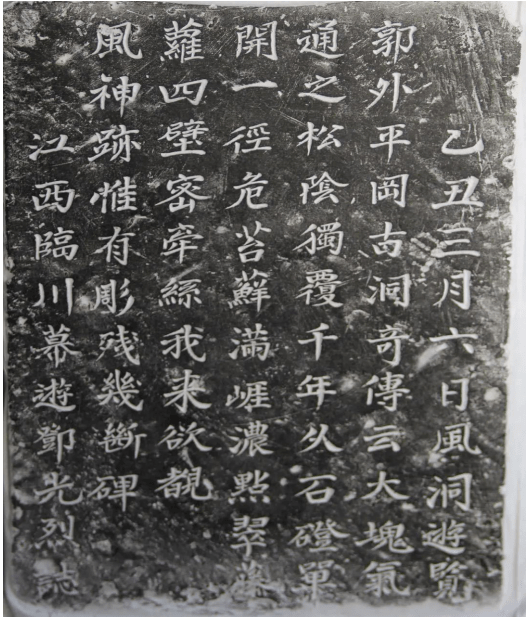 乙丑三月六日風洞遊覽
郭外平岡古洞奇傳云大塊氣
通之松陰獨覆千年久石磴單
開一徑危苔蘚滿崕濃點翠藤
蘿四壁密牵絲我来欲覩
風神跡惟有彫残幾断碑
江西臨川幕遊鄧光烈誌